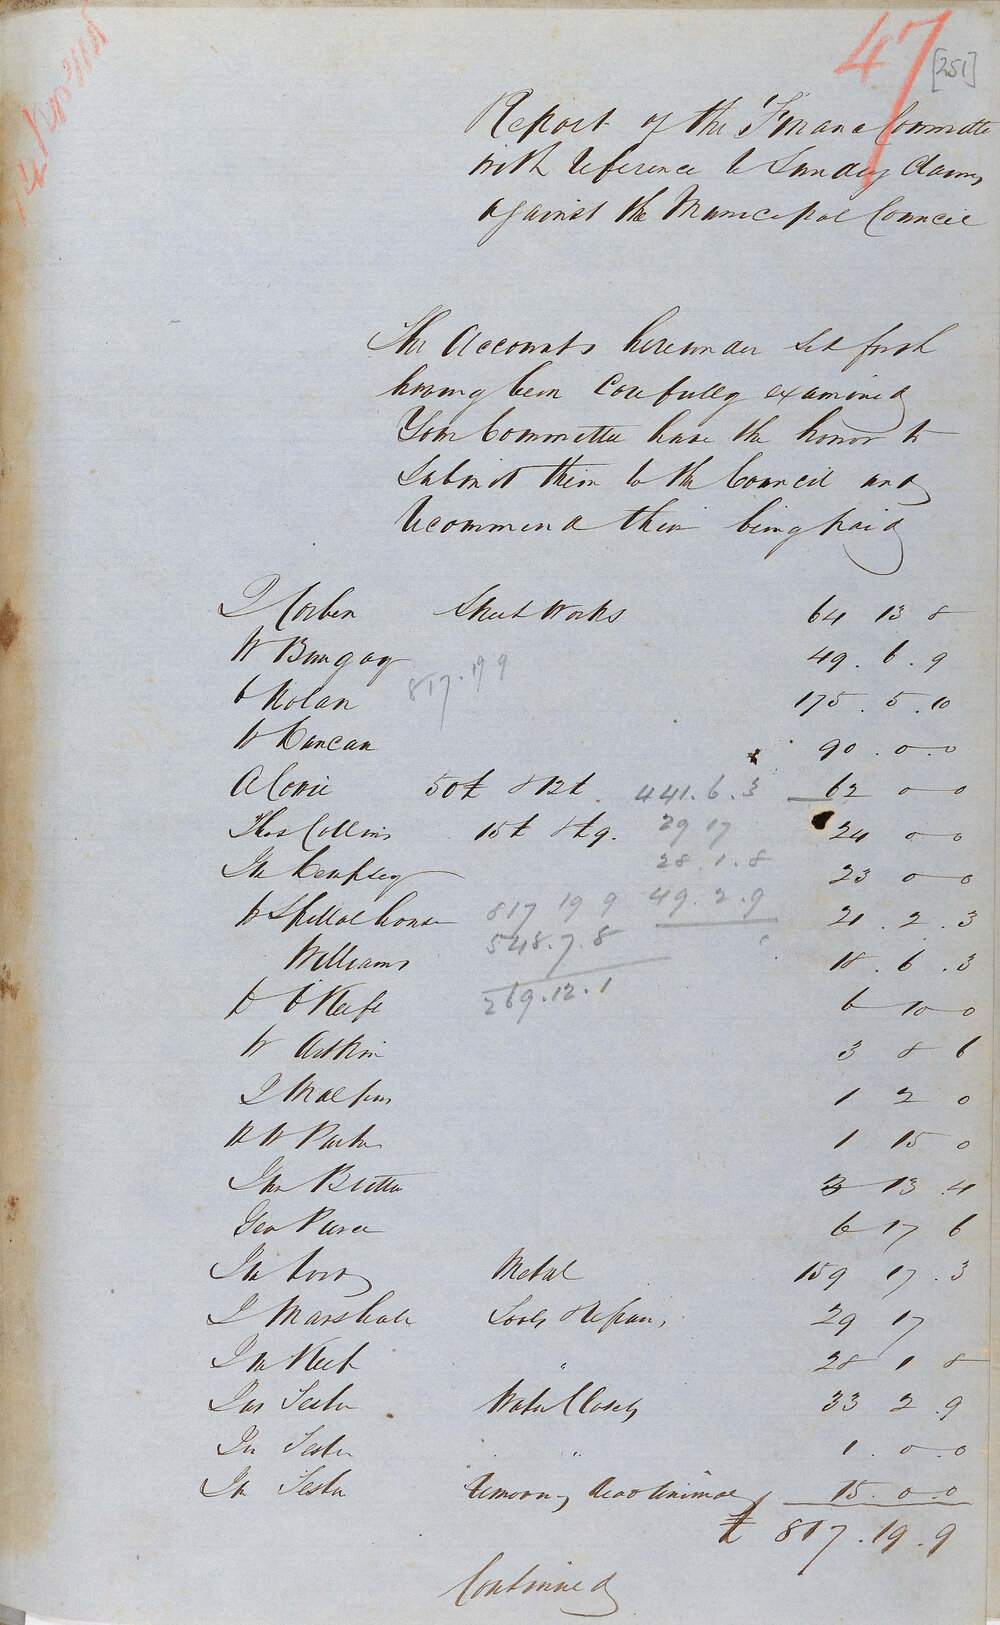 47
[251]
Report of the Finance Committee
with reference to Sundry Claims
against the Municipal Council
The Accounts hereunder set forth
having been Carefully examined
Your Committee have the honor to
submit them to the Council and
recommend their being paid
J Corben Street Works 64 13 8
W Bungay 49. 6. 9
817.19 9
Nolan 175. 5. 10
W Duncan 90. 0. 0
A Corrie 50£ & 12£ 441.6.3 62 0 0
Thos Collins 15£ & £9. 29 17 24 0 0
Jn Dempsey 28.1.8 23 0 0
W Spittal house 817 19 9 49.2.9 21. 2. 3
Williams 548.7.8 18. 6. 3
D O'Keefe 269.12.1 6 10 0
W Aitkin 3 8 6
J 1 2 0
W Parker 1 15 0
Jno 3 13 4
Geo Pierce 6 17 6
Jn Metal 159 17. 3
J Marshall Tools & Repairs, 29 17
Jn Keef " 28 1 8
Jas Water Closets 33 2 9
Jn " 1. 0. 0
Jn removing dead animals 15. 0. 0
£ 817. 19. 9
Continued